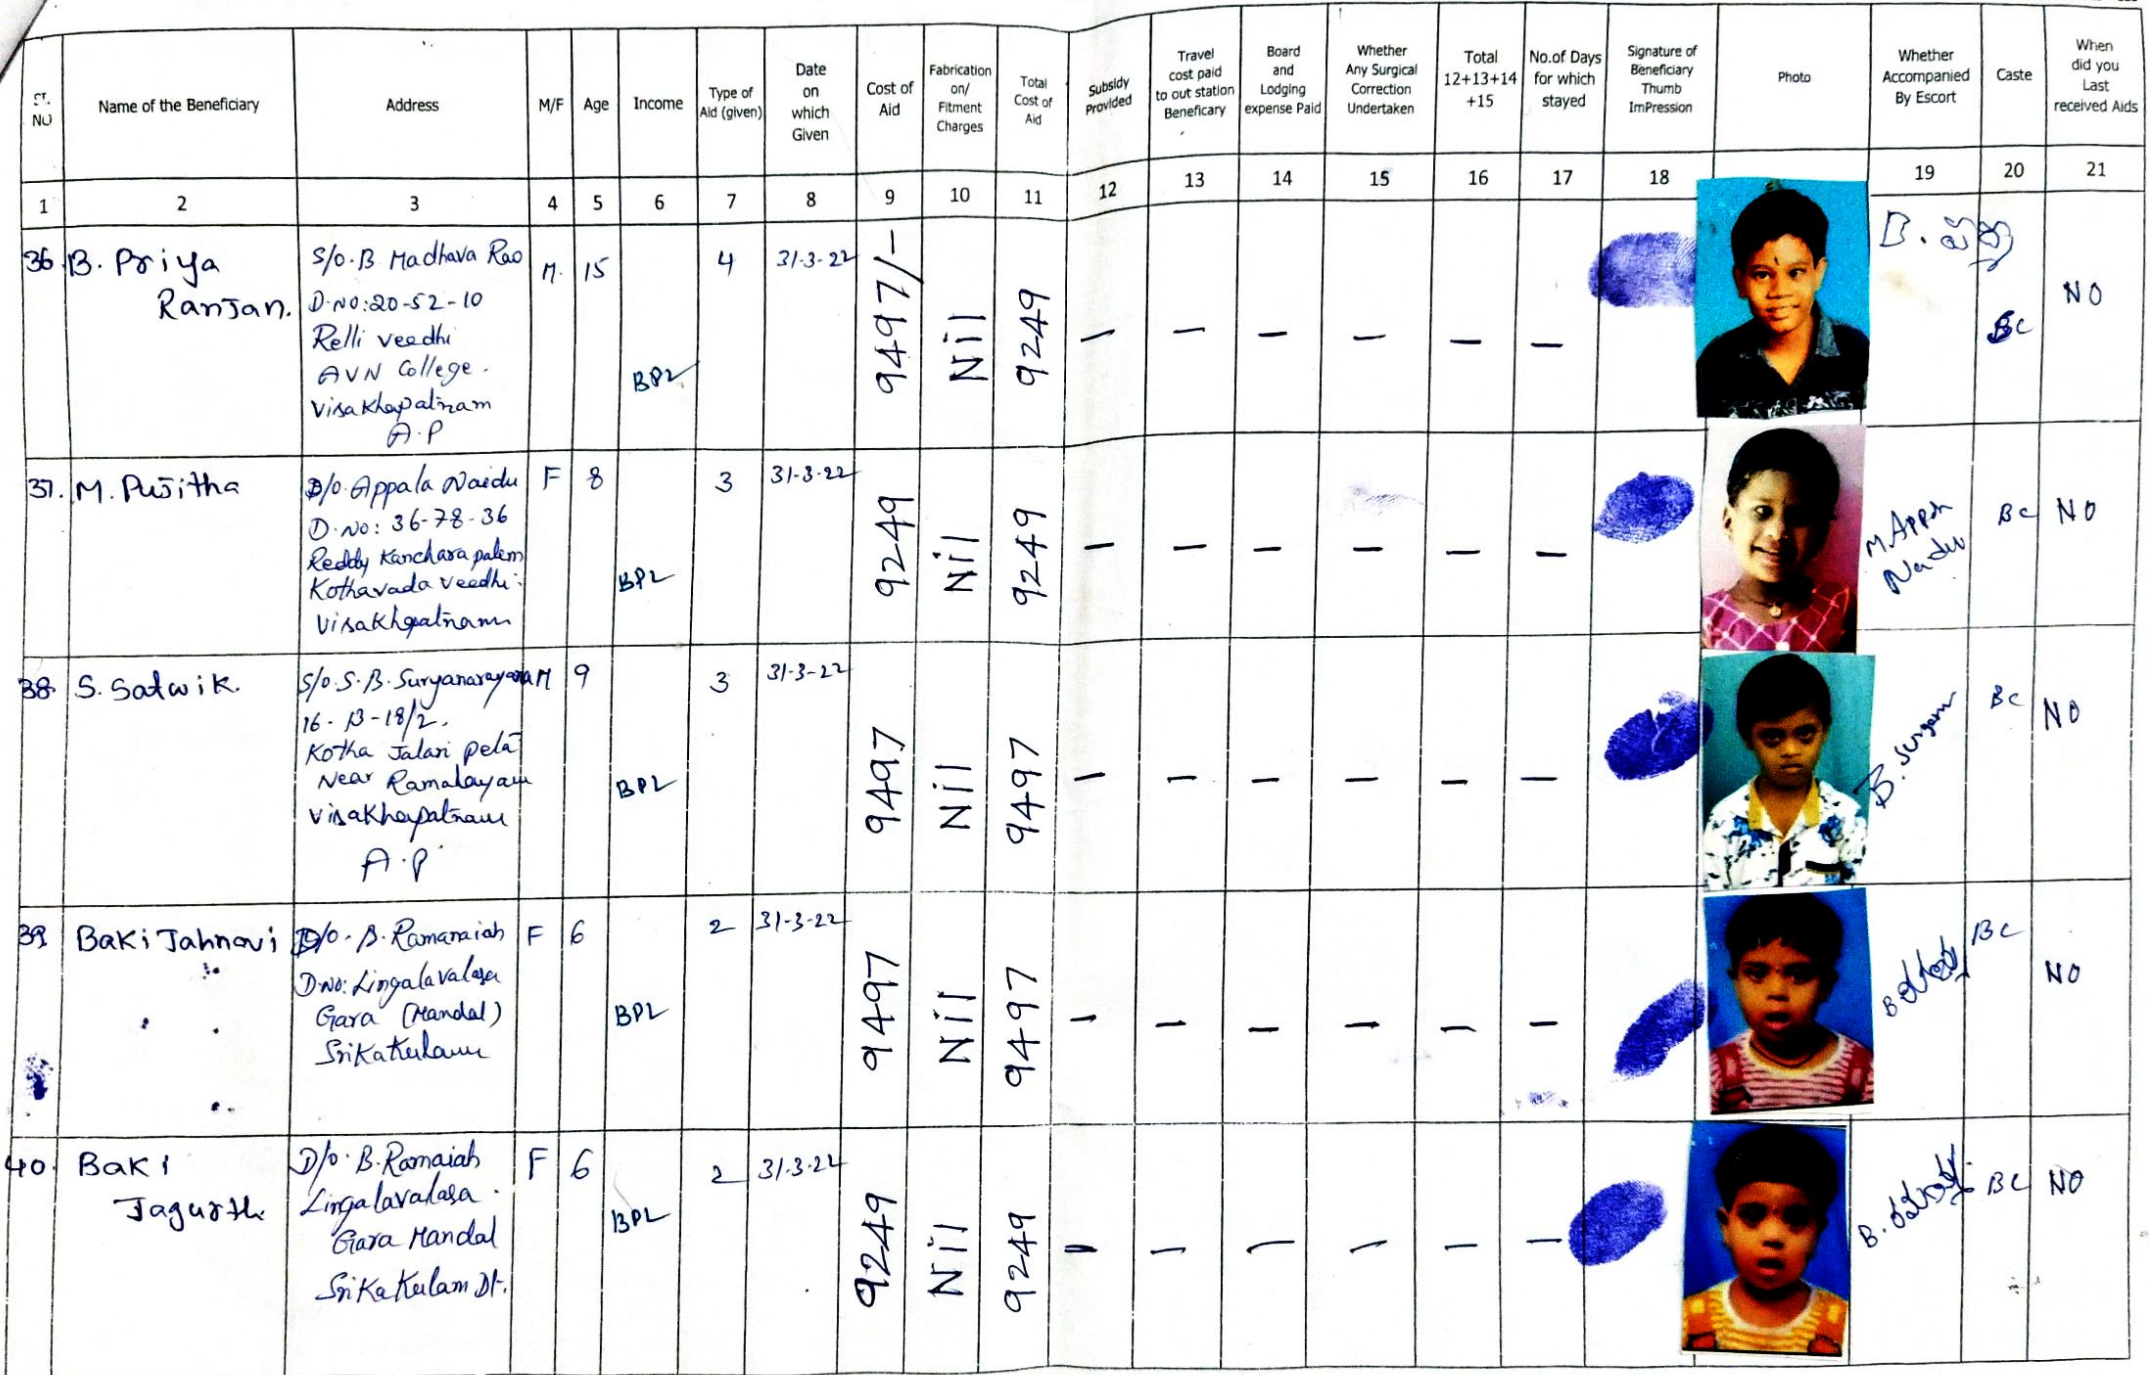 Sl. NO
Name of the Beneficiary
Address
M/F
Age
Income
Type of
Aid (given)
Date
on
which
Given
Cost of
Aid
Fabrication
on/
Fitment
Charges
Total
Cost of
Aid
Subsidy
Provided
Travel
cost paid
to out station
Beneficary
Board
and
Lodging
expense Paid
Whether
Any Surgical
Correction
Undertaken
Total
12+13+14
+15
No.of Days
for which
stayed
Signature of
Beneficiary
Thumb
ImPression
Photo
Whether
Accompanied
By Escort
Caste
When
did you
Last
received Aids
1 2 3 4 5 6 7 8 9 10 11 12 13 14 15 16 17 18 19 20 21
36. B. Priya
Ranjan.
S/o. B Madhava Rao
D.NO: 20-52-10
Relli veedhi
AVN College.
Visakhapatnam
A.P
M. 15 BPL 4 31-3-22 9497/- Nil 9249 — — — — — —
B.
BC NO
37. M. Pujitha
D/o. Appala Naidu
D.No: 36-78-36
Reddy Kancharapalem
Kothavada veedhi
Visakhapatnam
F 8 BPL 3 31-3-22 9249 Nil 9249 — — — — — —
M. Appa
Nadu
BC NO
38. S. Satwik.
S/o. S.B. Suryanarayana
16-13-18/2.
Kotha Jalari peta
Near Ramalayam
Visakhapatnam
A.P
M 9 BPL 3 31-3-22 9497 Nil 9497 — — — — — —
BC NO
39 Baki Jahnavi
D/o. B. Ramanaiah
D.No: Lingalavalasa
Gara (Mandal)
Srikakulam
F 6 BPL 2 31-3-22 9497 Nil 9497 — — — — — —
B
BC NO
40. Baki
Jagurthi
D/o. B. Ramaiah
Lingalavalasa.
Gara Mandal
Srikakulam Dt.
F 6 BPL 2 31.3.22 9249 Nil 9249 — — — — — —
B.
BC NO